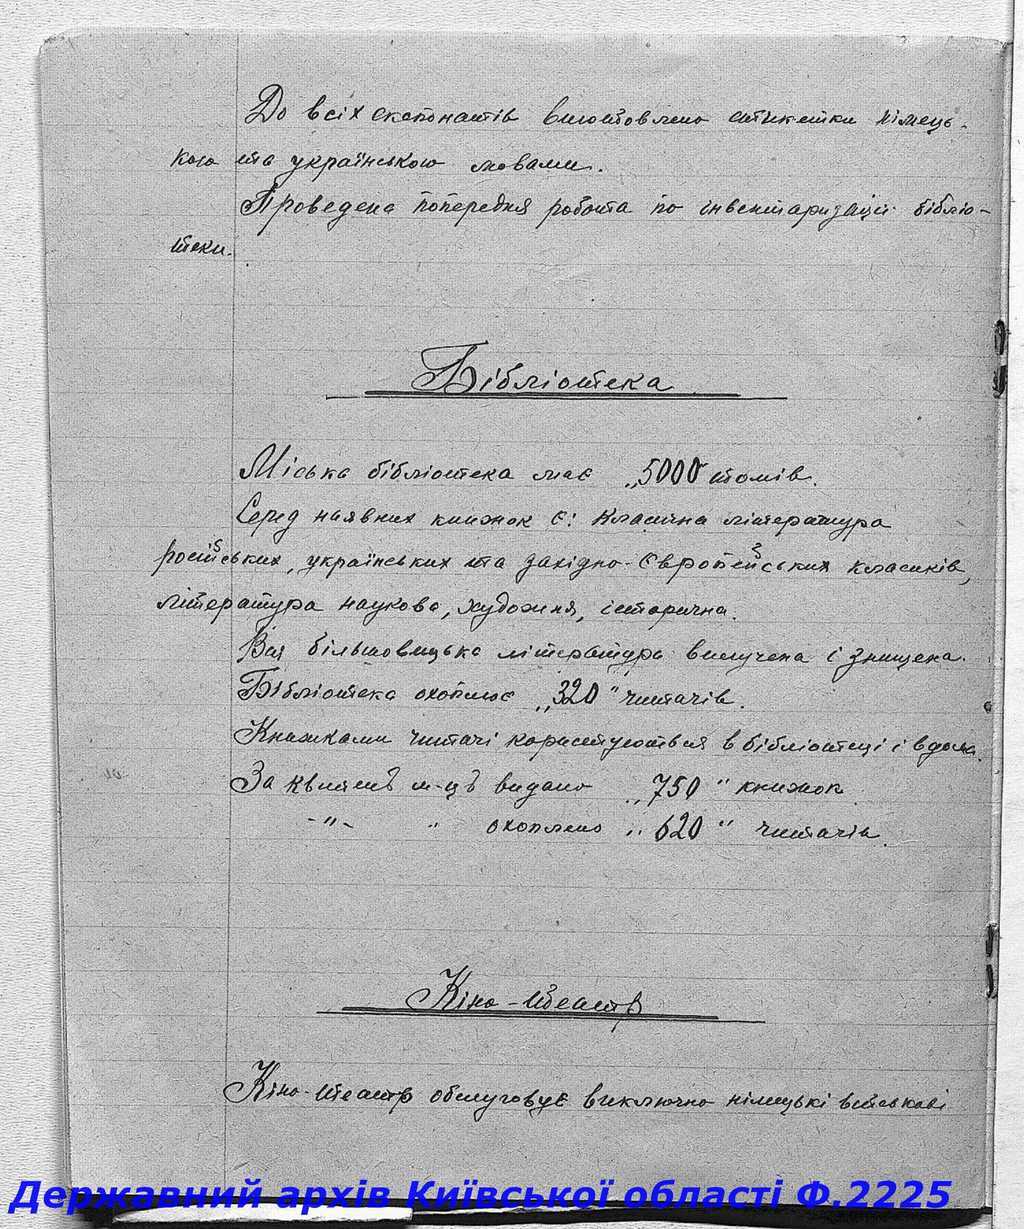 До всіх експонатів виготовлено етикетки німець-
кою та українською мовами.
Проведена попередня робота по інвентаризації бібліо-
теки.
Бібліотека
Міська бібліотека має „5000" томів.
Серед наявних книжок є: класична література
російських, українських та західно-європейських класиків,
література наукова, художня, історична.
Вся більшовицька література вилучена і знищена.
Бібліотека охоплює „320" читачів.
Книжками читачі користуються в бібліотеці і вдома.
За квітень м-ць видано „750" книжок
-"- " охоплено „620" читачів.
Кіно-театр
Кіно-театр обслуговує виключно німецькі військові
Державний архів Київської області Ф.2225